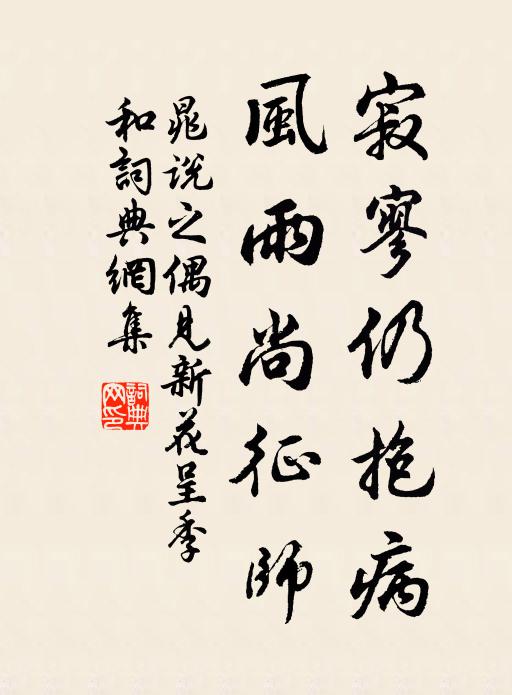 寂寥仍抱病
風雨尚征師
晁说之偶見新花呈季
和詞典網集
詞典
网印